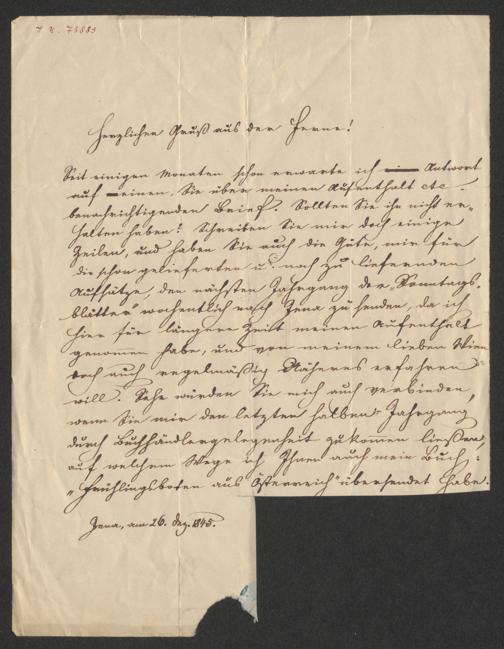 I. N. 78889
Herzlichen Gruß aus der Ferne!
Seit einigen Monaten schon erwarte ich Antwort
auf einen, Sie über meinen Aufenthalt etc.
benachrichtigenden Brief. Sollten Sie ihn nicht er-
halten haben? Schreiben Sie mir doch einige
Zeilen, und haben Sie auch die Güte, mir für
die schon gelieferten u. noch zu liefernden
Aufsätze, den nächsten Jahrgang der „Sonntags-
blätter" wöchentlich nach Jena zu senden, da ich
hier für längere Zeit meinen Aufenthalt
genomen habe, und von meinem lieben Wien
doch auch regelmäßig Näheres erfahren
will. Sehr würden Sie mich auch verbinden,
wenn Sie mir den letzten halben Jahrgang
durch Buchhändlergelegenheit zukomen ließen,
auf welchem Wege ich Ihnen auch mein Buch:
„Frühlingsboten aus Österreich übersendet habe.
Jena, am 26. Dez. 1845.